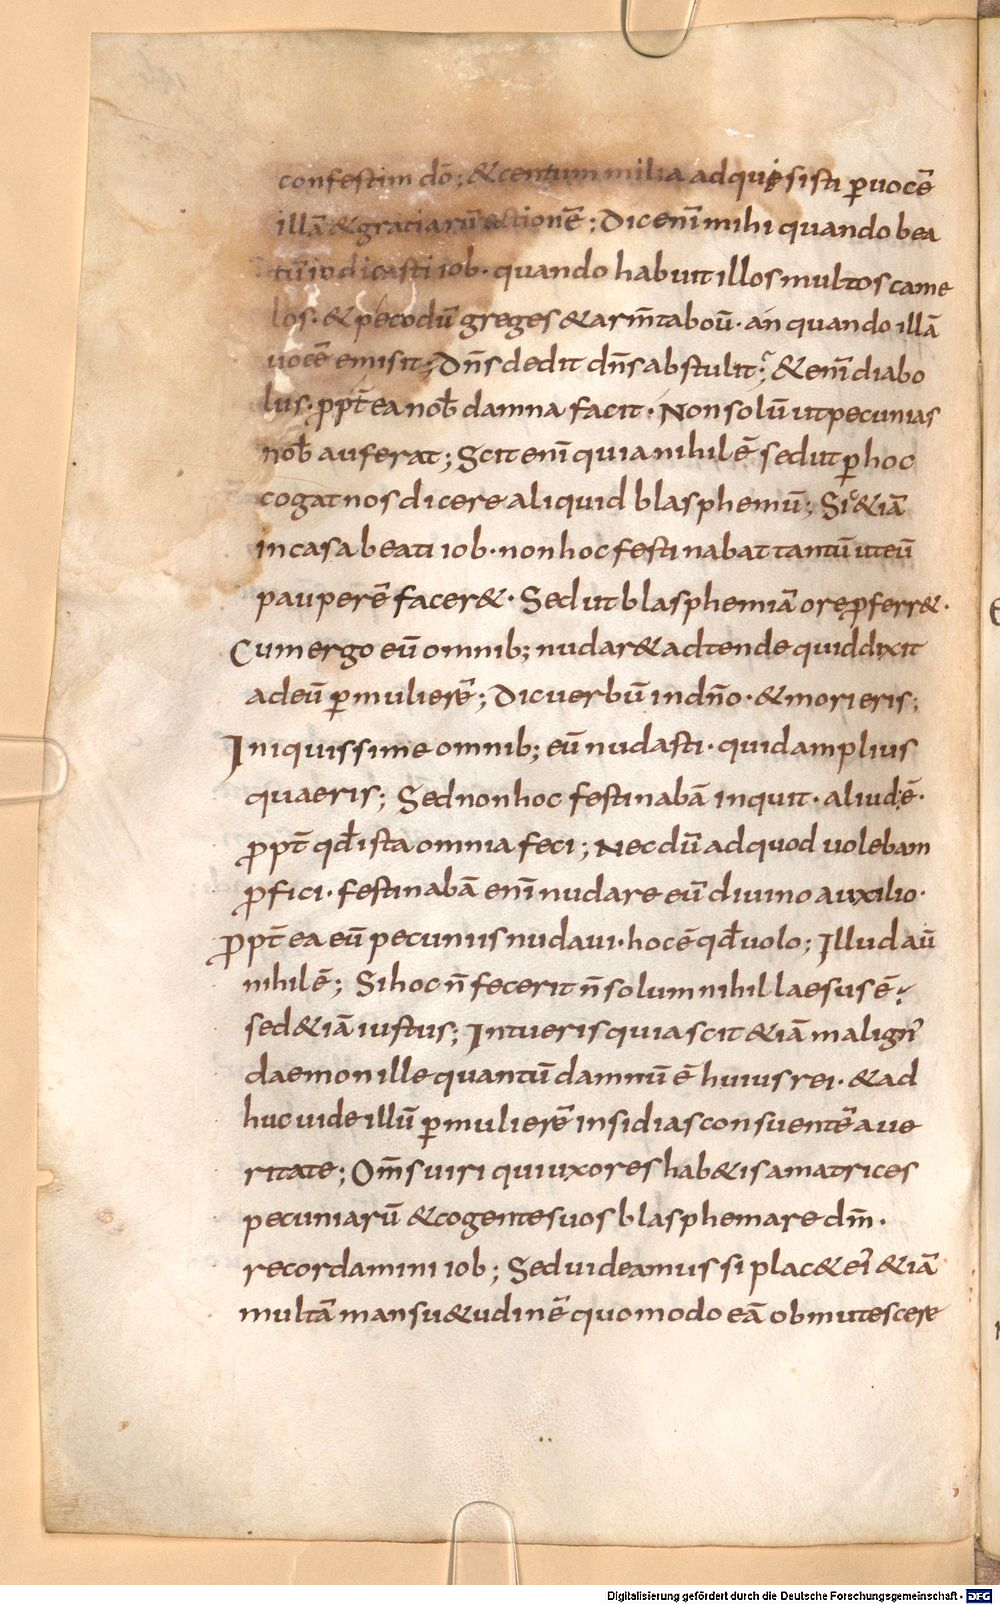 confestim dō; & centum milia adquisisti ꝑ uocē
illā & gratiarū actionē; Dic enī mihi quando bea
tū iudicasti iob · quando habuit illos multos came
los · & pecodū greges & arm̄ta boū · an quando illā
uocē emisit; Dn̄s dedit dn̄s abstulit; & enī diabo
lus · ꝓpt̄ ea nob̄ damna facit · Non solū ut pecunias
nob̄ auferat; Scit enī quia nihil ē sed ut ꝑ hoc
cogat nos dicere aliquid blasphemū; Sic & iā
in casa beati iob · non hoc festinabat tantū ut eū
pauperē facer& · Sed ut blasphemiā ore ꝓferr& ·
Cum ergo eū omnib; nudar& adtende quid dixit
ad eū ꝑ mulierē; Dic uerbū in dn̄o · & morieris;
Iniquissime omnib; eū nudasti · quid amplius
quaeris; Sed non hoc festinabā inquit · aliud ē ·
ꝓpt̄ qd̄ ista omnia feci; Necdū ad quod uolebam
ꝓfici · festinabā enī nudare eū diuino auxilio ·
ꝓpt̄ ea eū pecuniis nudaui · hoc ē qd̄ uolo; Illud aū
nihil ē; Si hoc n̄ fecerit n̄ solum nihil laesus ē;
sed & iā iustus; Intueris quia scit & iā malign᾿
daemon ille quantū damnū ē huius rei · & ad
huc uide illū ꝑ mulierē insidias consuentē a ue
ritate; Om̄s uiri qui uxores hab&is amatrices
pecuniarū & cogentes uos blasphemare dm̄ ·
recordamini iob; Sed uideamus si plac& ei & iā
multā mansu&udinē quomodo eā obmutescere
Digitalisierung gefördert durch die Deutsche Forschungsgemeinschaft - DFG